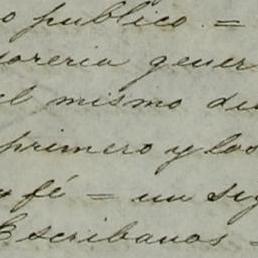 o publico. =
soreria gener
el mismo di
primero y los
y fé = un sig
Escribanos =